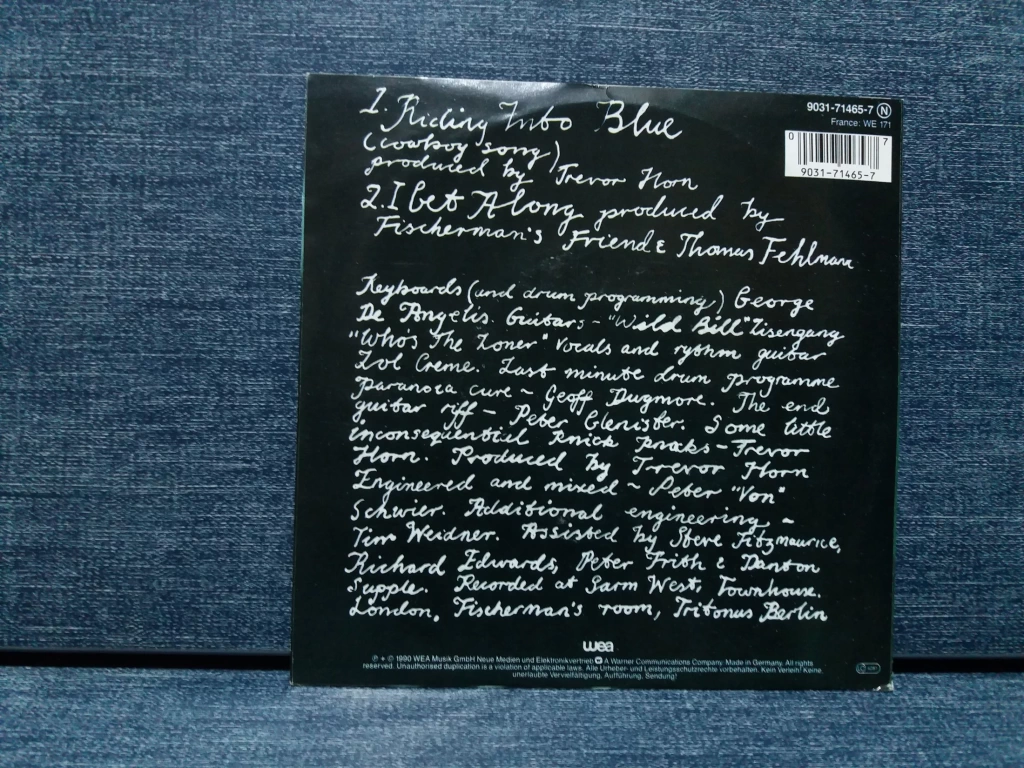 1. Riding Into Blue
(cowboy song)
produced by Trevor Horn
2. I Get Along produced by
Fischerman's Friend & Thomas Fehlmann
9031-71465-7 N
France: WE 171
0 7
9031-71465-7
Keyboards (and drum programming) George
De Angelis. Guitars - "Wild Bill" Zisengang
"Who's The Loner" Vocals and rythm guitar
Lol Creme. Last minute drum programme
paranoia cure - Geoff Dugmore. The end
guitar riff - Peter Glenister. Some little
inconsequential knick knacks - Trevor
Horn. Produced by Trevor Horn
Engineered and mixed - Peter "Von"
Schwier. Additional engineering -
Tim Weidner. Assisted by Steve Fitzmaurice,
Richard Edwards, Peter Frith & Danton
Supple. Recorded at Sarm West, Townhouse.
London, Fischerman's room, Tritonus Berlin
wea
℗ + © 1990 WEA Musik GmbH Neue Medien und Elektronikvertrieb A Warner Communications Company. Made in Germany. All rights
reserved. Unauthorised duplication is a violation of applicable laws. Alle Urheber- und Leistungsschutzrechte vorbehalten. Kein Verleih! Keine
unerlaubte Vervielfältigung, Aufführung, Sendung!